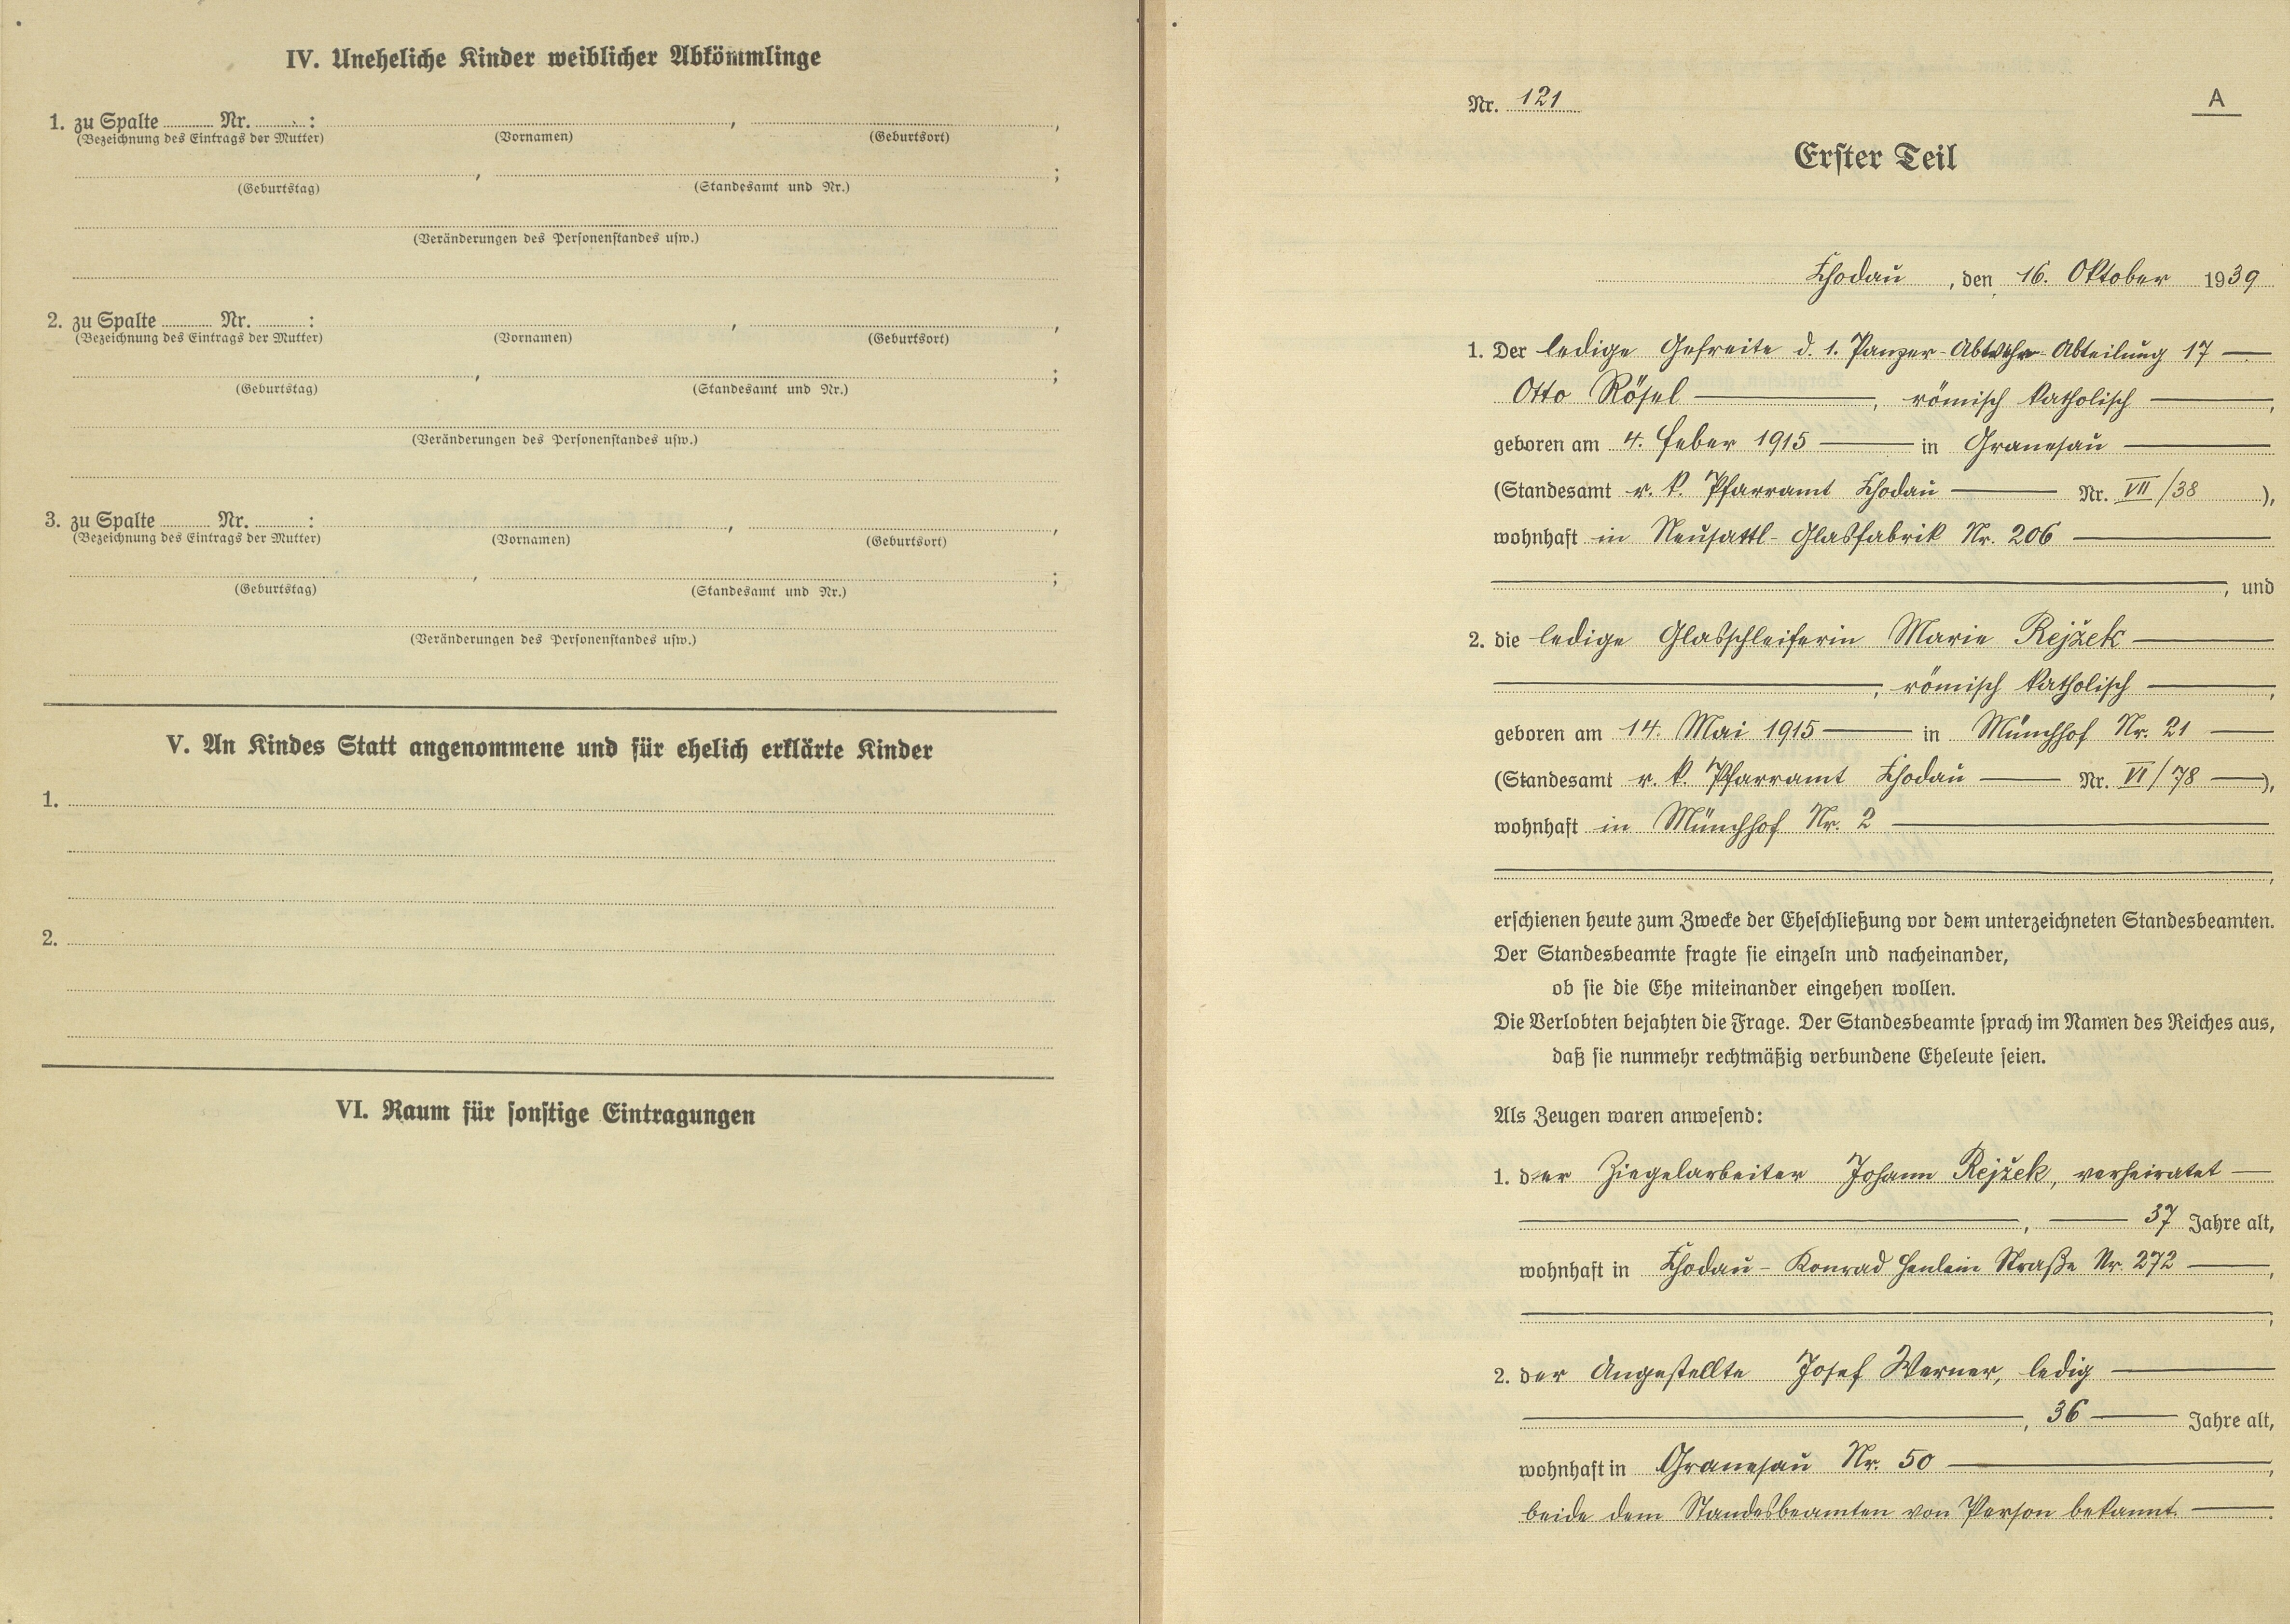 IV. Uneheliche Kinder weiblicher Abkömmlinge
1. zu Spalte Nr. : , ,
(Bezeichnung des Eintrags der Mutter) (Vornamen) (Geburtsort)
, ;
(Geburtstag) (Standesamt und Nr.)
(Veränderungen des Personenstandes usw.)
2. zu Spalte Nr. : , ,
(Bezeichnung des Eintrags der Mutter) (Vornamen) (Geburtsort)
, ;
(Geburtstag) (Standesamt und Nr.)
(Veränderungen des Personenstandes usw.)
3. zu Spalte Nr. : , ,
(Bezeichnung des Eintrags der Mutter) (Vornamen) (Geburtsort)
, ;
(Geburtstag) (Standesamt und Nr.)
(Veränderungen des Personenstandes usw.)
V. An Kindes Statt angenommene und für ehelich erklärte Kinder
1.
2.
VI. Raum für sonstige Eintragungen
Nr. 121 A
Erster Teil
Chodau, den 16. Oktober 1939
1. Der ledige Gefreite d. 1. Panzer-Abwehr-Abteilung 17 —
Otto Rösel —, römisch katholisch —,
geboren am 4. Feber 1915 — in Granesau —
(Standesamt r. k. Pfarramt Chodau — Nr. VII/38 ),
wohnhaft in Neusattl-Glasfabrik Nr. 206 —
—, und
2. die ledige Glasschleiferin Marie Rejžek —
—, römisch katholisch —,
geboren am 14. Mai 1915 — in Münchhof Nr. 21 —
(Standesamt r. k. Pfarramt Chodau — Nr. VI/78 —),
wohnhaft in Münchhof Nr. 2 —
—,
erschienen heute zum Zwecke der Eheschließung vor dem unterzeichneten Standesbeamten.
Der Standesbeamte fragte sie einzeln und nacheinander,
ob sie die Ehe miteinander eingehen wollen.
Die Verlobten bejahten die Frage. Der Standesbeamte sprach im Namen des Reiches aus,
daß sie nunmehr rechtmäßig verbundene Eheleute seien.
Als Zeugen waren anwesend:
1. der Ziegelarbeiter Johann Rejžek, verheiratet —
—, — 37 Jahre alt,
wohnhaft in Chodau - Konrad Henlein Straße Nr. 272 —,
—,
2. der Angestellte Josef Werner, ledig —
—, 36 — Jahre alt,
wohnhaft in Granesau Nr. 50 —,
beide dem Standesbeamten von Person bekannt. —.